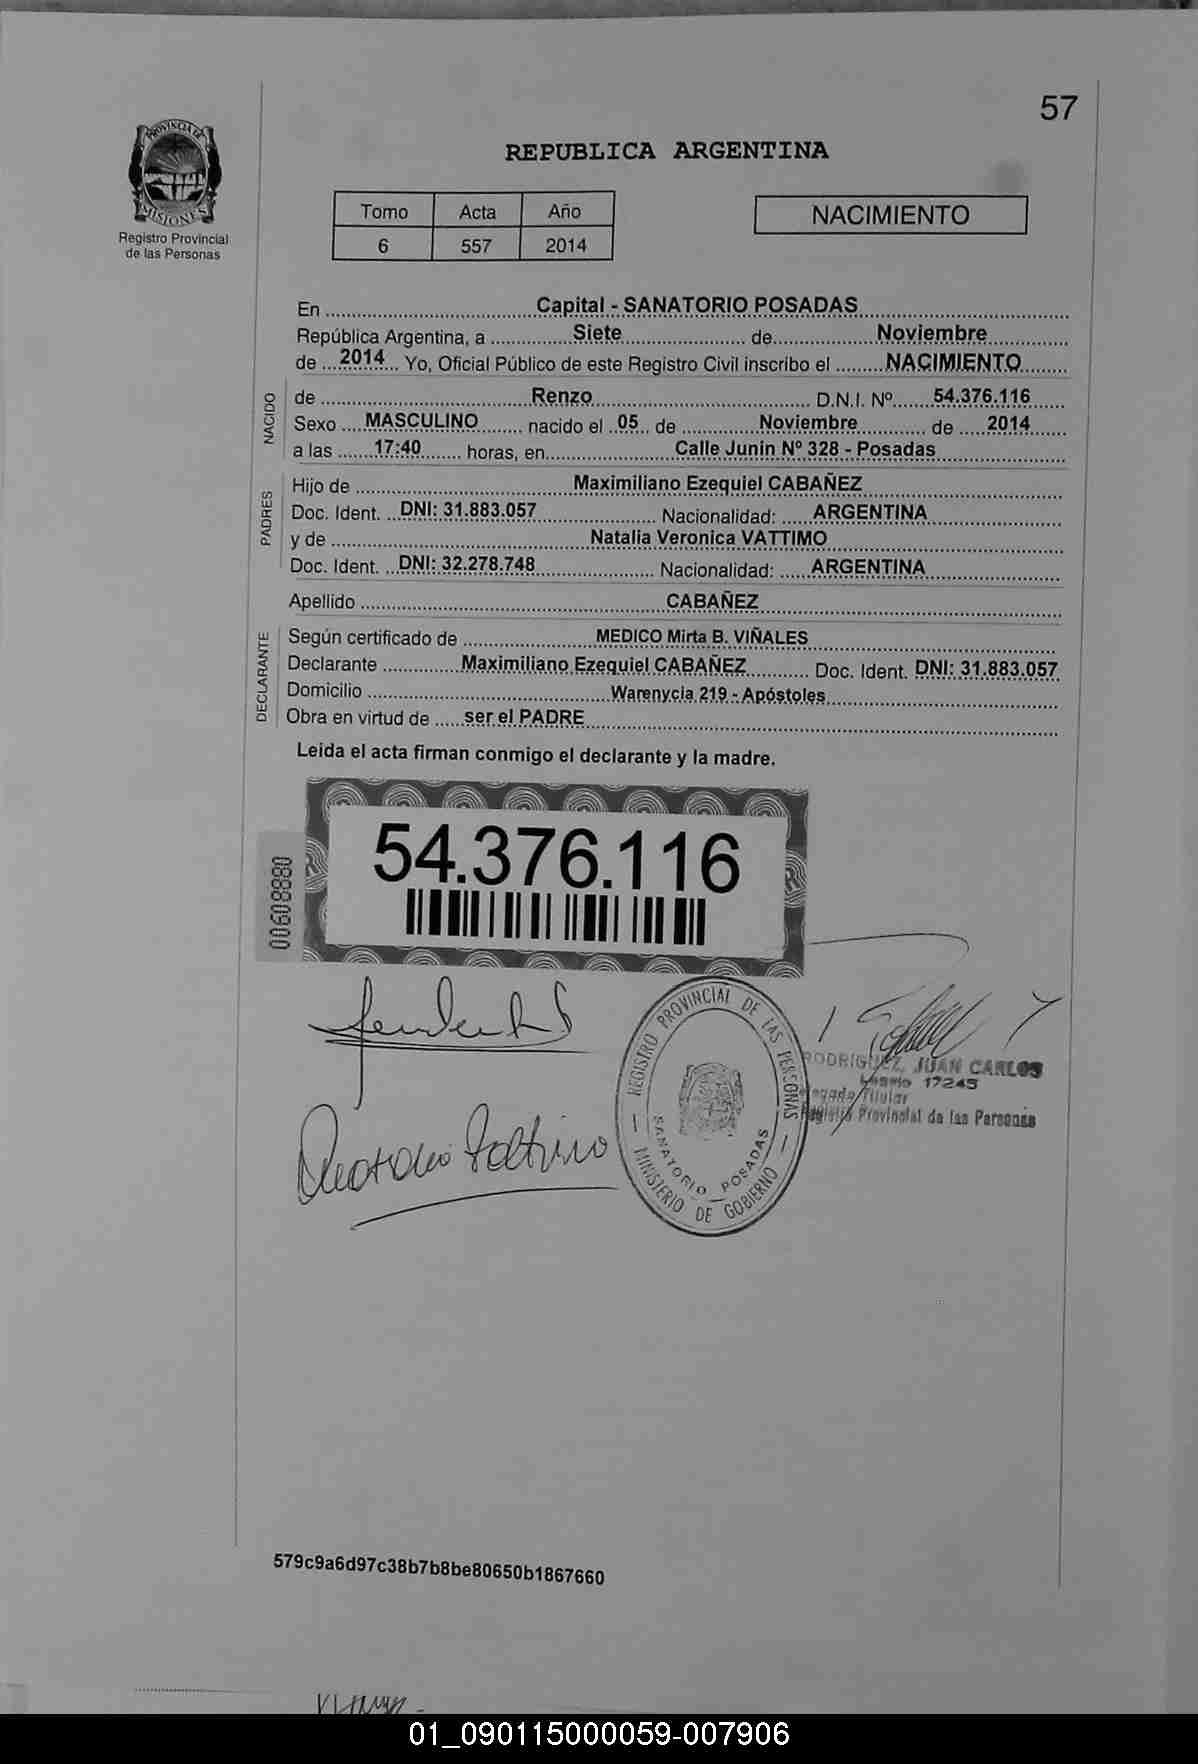 57
PROVINCIA DE
MISIONES
Registro Provincial
de las Personas
REPUBLICA ARGENTINA
Tomo Acta Año
6 557 2014
NACIMIENTO
En ........ Capital - SANATORIO POSADAS ........
República Argentina, a ........ Siete ........ de ........ Noviembre ........
de ... 2014 ... Yo, Oficial Público de este Registro Civil inscribo el ........ NACIMIENTO ........
NACIDO
de ........ Renzo ........ D.N.I. Nº ........ 54.376.116 ........
Sexo .... MASCULINO ........ nacido el .. 05 .. de ........ Noviembre ........ de ..... 2014 ........
a las ...... 17:40 ........ horas, en ........ Calle Junin Nº 328 - Posadas ........
PADRES
Hijo de ........ Maximiliano Ezequiel CABAÑEZ ........
Doc. Ident. ... DNI: 31.883.057 ........ Nacionalidad: ...... ARGENTINA ........
y de ........ Natalia Veronica VATTIMO ........
Doc. Ident. ... DNI: 32.278.748 ........ Nacionalidad: ...... ARGENTINA ........
Apellido ........ CABAÑEZ ........
DECLARANTE
Según certificado de ........ MEDICO Mirta B. VIÑALES ........
Declarante ........ Maximiliano Ezequiel CABAÑEZ ........ Doc. Ident. DNI: 31.883.057
Domicilio ........ Warenycia 219 - Apóstoles ........
Obra en virtud de ..... ser el PADRE ........
Leida el acta firman conmigo el declarante y la madre.
54.376.116
00608880
REGISTRO PROVINCIAL DE LAS PERSONAS
SANATORIO POSADAS
MINISTERIO DE GOBIERNO
RODRIGUEZ, JUAN CARLOS
Legajo 17245
Titular
Registro Provincial de las Personas
579c9a6d97c38b7b8be80650b1867660
01_090115000059-007906